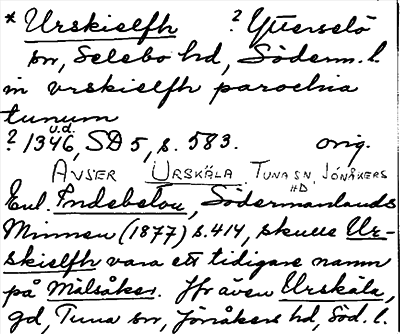 * Urskielfh ? Ytterselö
sn, Selebo hd, Söderm. l.
in vrskielfh parochia
tunum
u.d.
? 1346, SD 5, s. 583. orig.
AVSER URSKÄLA TUNA SN, JÖNÅKERS
HD
Enl. Södermanlands
Minnen (1877) s. 414, skulle Ur-
skielfh vara ett tidigare namn
på Mälsåker. Jfr även Urskäla,
gd, Tuna sn, Jönåkers hd, Söd. l.